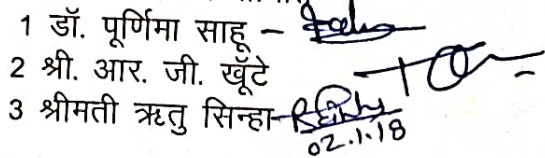 1 डॉ. पूर्णिमा साहू –
2 श्री. आर. जी. खूँटे
3 श्रीमती ऋतु सिन्हा-
02.1.18